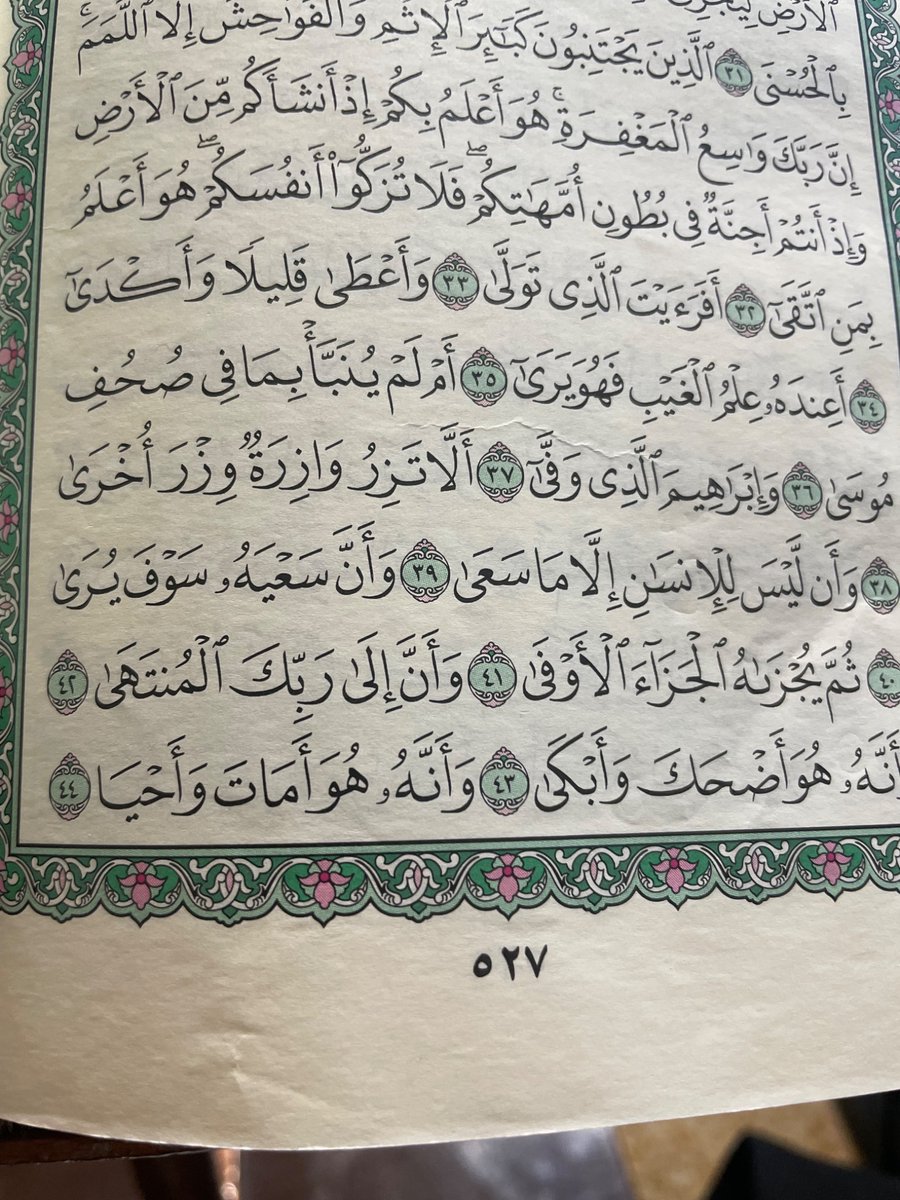 ٱلْأَرْضِ لِيَجْزِىَ
بِٱلْحُسْنَى ٣١ ٱلَّذِينَ يَجْتَنِبُونَ كَبَٰٓئِرَ ٱلْإِثْمِ وَٱلْفَوَٰحِشَ إِلَّا ٱللَّمَمَ ۚ
إِنَّ رَبَّكَ وَٰسِعُ ٱلْمَغْفِرَةِ ۚ هُوَ أَعْلَمُ بِكُمْ إِذْ أَنشَأَكُم مِّنَ ٱلْأَرْضِ
وَإِذْ أَنتُمْ أَجِنَّةٌ فِى بُطُونِ أُمَّهَٰتِكُمْ ۖ فَلَا تُزَكُّوٓا۟ أَنفُسَكُمْ ۖ هُوَ أَعْلَمُ
بِمَنِ ٱتَّقَىٰٓ ٣٢ أَفَرَءَيْتَ ٱلَّذِى تَوَلَّىٰ ٣٣ وَأَعْطَىٰ قَلِيلًا وَأَكْدَىٰٓ
٣٤ أَعِندَهُۥ عِلْمُ ٱلْغَيْبِ فَهُوَ يَرَىٰٓ ٣٥ أَمْ لَمْ يُنَبَّأْ بِمَا فِى صُحُفِ
مُوسَىٰ ٣٦ وَإِبْرَٰهِيمَ ٱلَّذِى وَفَّىٰٓ ٣٧ أَلَّا تَزِرُ وَازِرَةٌ وِزْرَ أُخْرَىٰ
٣٨ وَأَن لَّيْسَ لِلْإِنسَٰنِ إِلَّا مَا سَعَىٰ ٣٩ وَأَنَّ سَعْيَهُۥ سَوْفَ يُرَىٰ
٤٠ ثُمَّ يُجْزَىٰهُ ٱلْجَزَآءَ ٱلْأَوْفَىٰ ٤١ وَأَنَّ إِلَىٰ رَبِّكَ ٱلْمُنتَهَىٰ ٤٢
أَنَّهُۥ هُوَ أَضْحَكَ وَأَبْكَىٰ ٤٣ وَأَنَّهُۥ هُوَ أَمَاتَ وَأَحْيَا ٤٤
٥٢٧